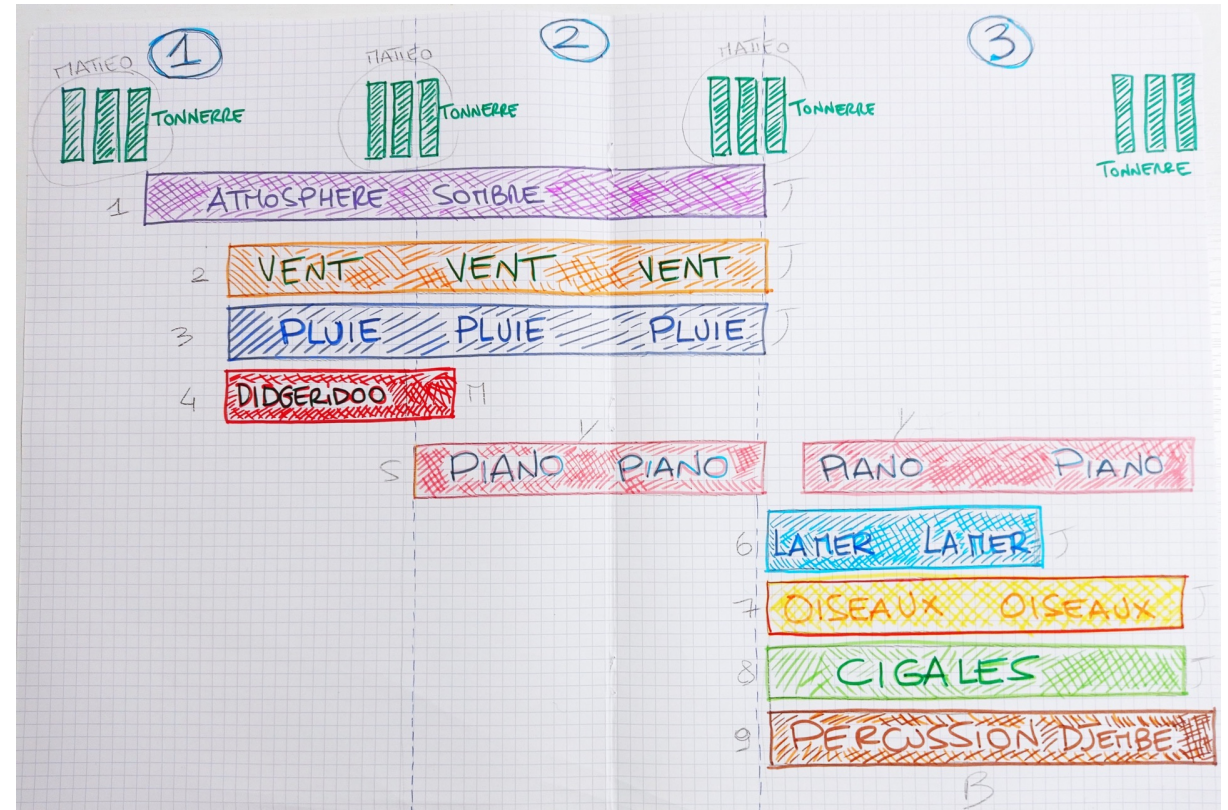 1 2 3
MATTEO MATTEO MATTEO
TONNERRE TONNERRE TONNERRE
TONNERRE
1 ATMOSPHERE SOMBRE J
2 VENT VENT VENT J
3 PLUIE PLUIE PLUIE J
4 DIDGERIDOO M
Y Y
5 PIANO PIANO PIANO PIANO
6 LA MER LA MER J
7 OISEAUX OISEAUX J
8 CIGALES J
9 PERCUSSION DJEMBE
B